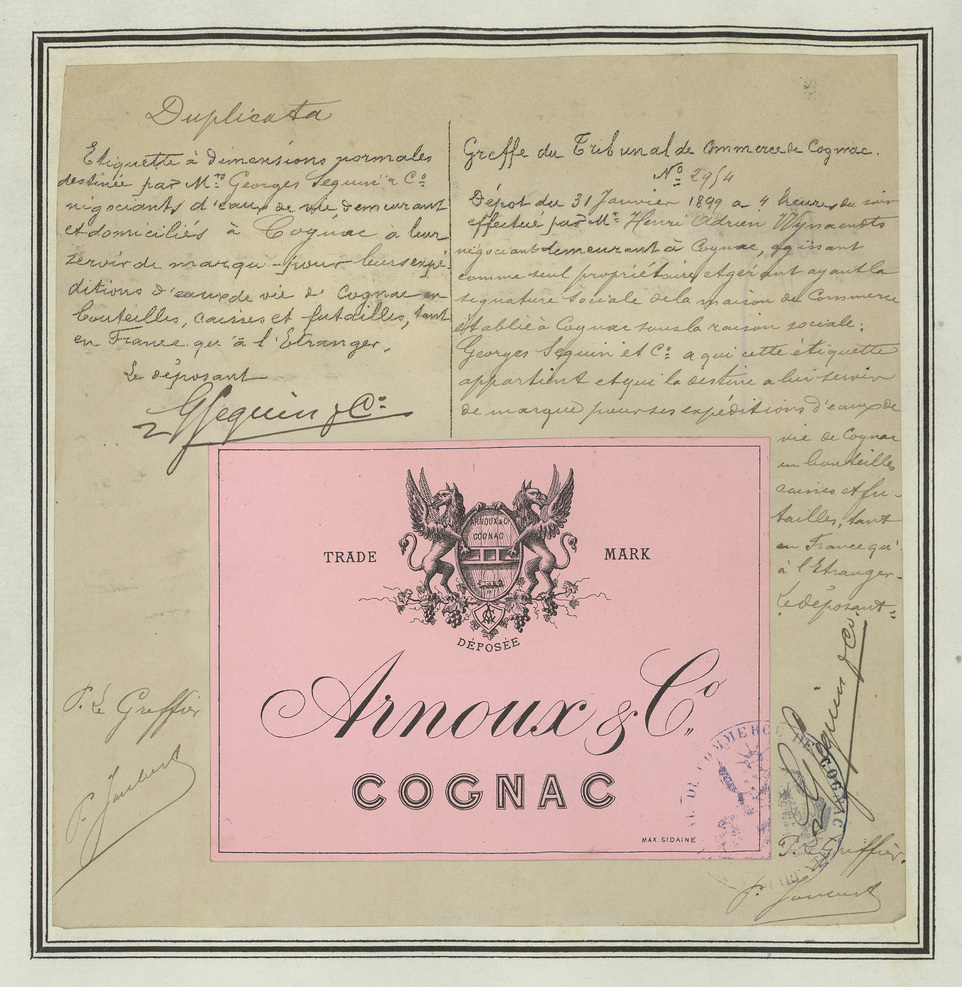 Duplicata
Etiquette à dimensions normales
destinée par Mrs Georges Seguin & Co
négociants d'eaux de vie, demeurant
et domiciliés à Cognac à leur
servir de marque pour leurs expé-
ditions d'eaux de vie de Cognac en
bouteilles, caisses et futailles, tant
en France qu'à l'Etranger.
Le déposant
GSeguin & Co
P. Le Greffier
Greffe du Tribunal de Commerce de Cognac.
No 2954
Dépot du 31 Janvier 1899 a 4 heures de soir
effectué par Mr Henri Adrien
négociant demeurant à Cognac, agissant
comme seul propriétaire et gérant ayant la
signature sociale de la maison de Commerce
établie à Cognac sous la raison sociale:
Georges Seguin et Co a qui cette étiquette
appartient et qui la destine a lui servir
de marque pour ses expéditions d'eaux de
vie de Cognac
en bouteilles
caisses et fu-
tailles, tant
en France qu'
à l'Etranger-
Le déposant
GSeguin & Co
P. Le Greffier.
ARNOUX & Co
COGNAC
TRADE MARK
DÉPOSÉE
Arnoux & Co.
COGNAC
MAX SIDAINE
DE COMMERCE DE COGNAC